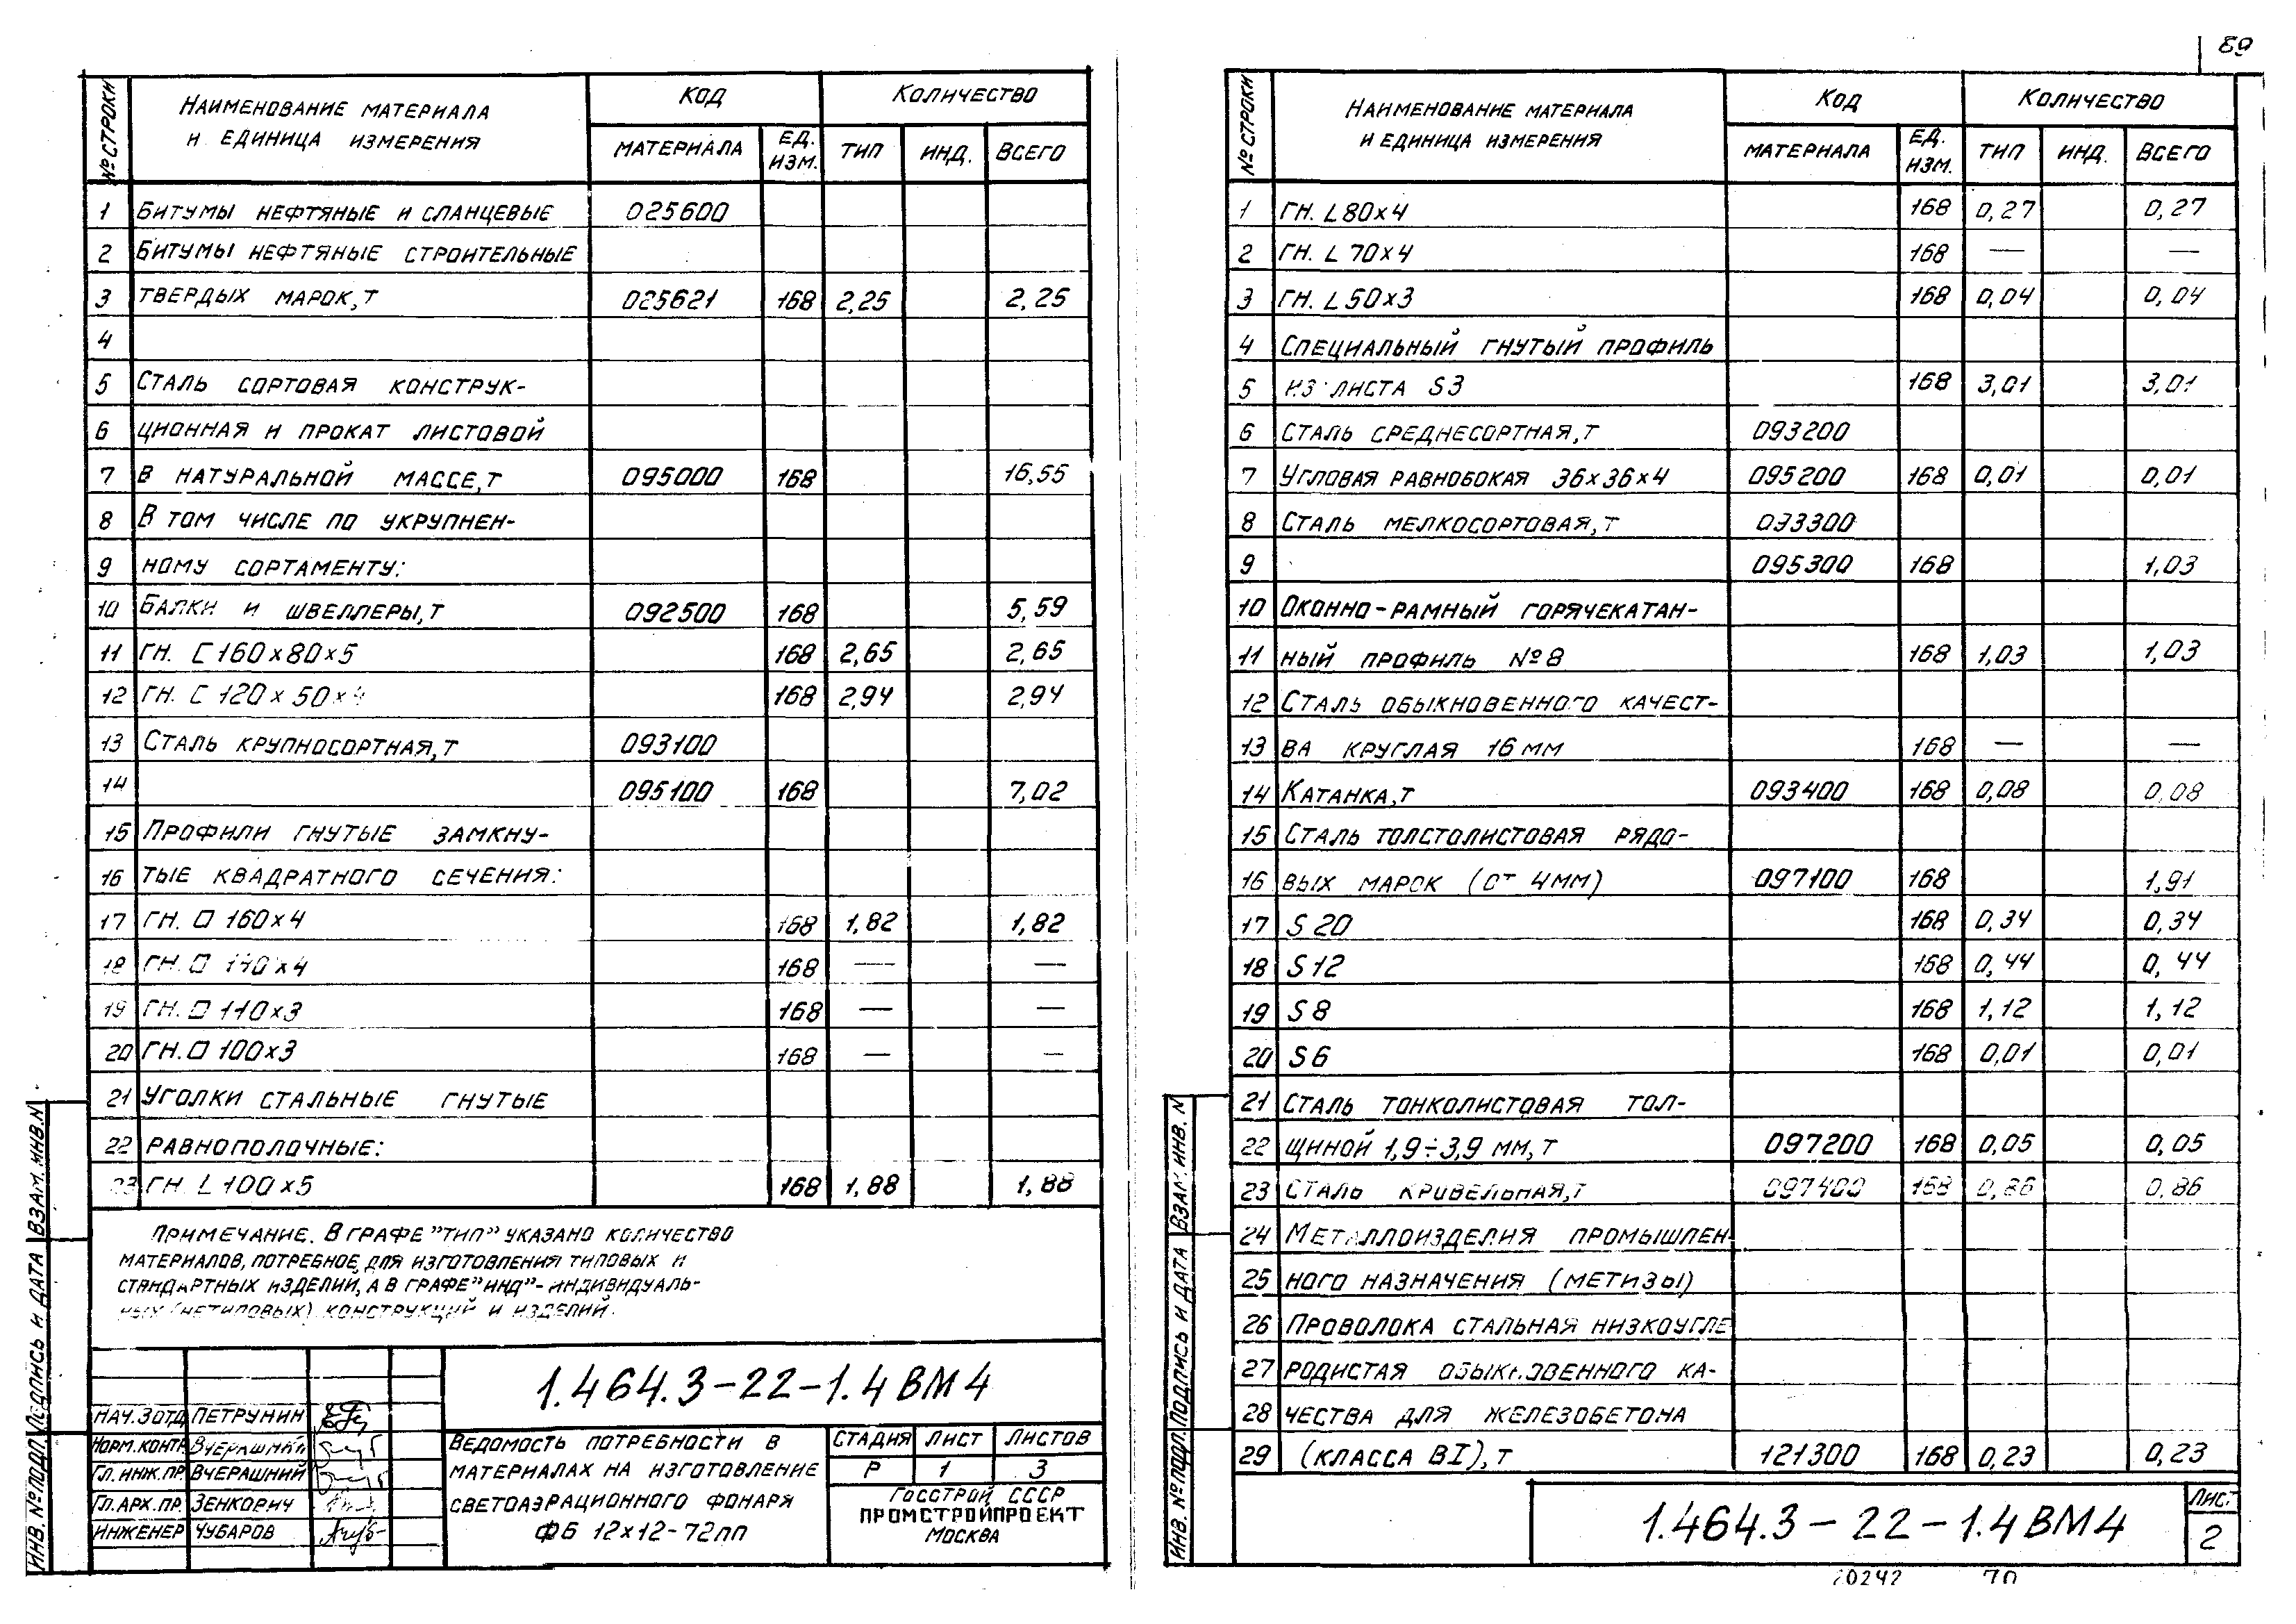 89
№ СТРОКИ
НАИМЕНОВАНИЕ МАТЕРИАЛА
И ЕДИНИЦА ИЗМЕРЕНИЯ
КОД
КОЛИЧЕСТВО
МАТЕРИАЛА
ЕД. ИЗМ.
ТИП
ИНД.
ВСЕГО
1 БИТУМЫ НЕФТЯНЫЕ И СЛАНЦЕВЫЕ 025600
2 БИТУМЫ НЕФТЯНЫЕ СТРОИТЕЛЬНЫЕ
3 ТВЕРДЫХ МАРОК, Т 025621 168 2,25 2,25
4
5 СТАЛЬ СОРТОВАЯ КОНСТРУК-
6 ЦИОННАЯ И ПРОКАТ ЛИСТОВОЙ
7 В НАТУРАЛЬНОЙ МАССЕ, Т 095000 168 16,55
8 В ТОМ ЧИСЛЕ ПО УКРУПНЕН-
9 НОМУ СОРТАМЕНТУ:
10 БАЛКИ И ШВЕЛЛЕРЫ, Т 092500 168 5,59
11 ГН. С 160×80×5 168 2,65 2,65
12 ГН. С 120×50×4 168 2,94 2,94
13 СТАЛЬ КРУПНОСОРТНАЯ, Т 093100
14 095100 168 7,02
15 ПРОФИЛИ ГНУТЫЕ ЗАМКНУ-
16 ТЫЕ КВАДРАТНОГО СЕЧЕНИЯ:
17 ГН. □ 160×4 168 1,82 1,82
18 ГН. □ 140×4 168 — —
19 ГН. □ 110×3 168 — —
20 ГН. □ 100×3 168 — —
21 УГОЛКИ СТАЛЬНЫЕ ГНУТЫЕ
22 РАВНОПОЛОЧНЫЕ:
23 ГН. L 100×5 168 1,88 1,88
ПРИМЕЧАНИЕ. В ГРАФЕ "ТИП" УКАЗАНО КОЛИЧЕСТВО
МАТЕРИАЛОВ, ПОТРЕБНОЕ ДЛЯ ИЗГОТОВЛЕНИЯ ТИПОВЫХ И
СТАНДАРТНЫХ ИЗДЕЛИЙ, А В ГРАФЕ "ИНД" - ИНДИВИДУАЛЬ-
НЫХ (НЕТИПОВЫХ) КОНСТРУКЦИЙ И ИЗДЕЛИЙ.
1.464.3-22-1.4 ВМ4
НАЧ. ЗОТД ПЕТРУНИН
НОРМ. КОНТР. ВЧЕРАШНИЙ
ГЛ. ИНЖ. ПР. ВЧЕРАШНИЙ
ГЛ. АРХ. ПР. ЗЕНКОВИЧ
ИНЖЕНЕР ЧУБАРОВ
ВЕДОМОСТЬ ПОТРЕБНОСТИ В
МАТЕРИАЛАХ НА ИЗГОТОВЛЕНИЕ
СВЕТОАЭРАЦИОННОГО ФОНАРЯ
ФБ 12×12-72ПП
СТАДИЯ ЛИСТ ЛИСТОВ
Р 1 3
ГОССТРОЙ СССР
ПРОМСТРОЙПРОЕКТ
МОСКВА
ИНВ. № ПОДЛ. ПОДПИСЬ И ДАТА ВЗАМ. ИНВ. N
№ СТРОКИ
НАИМЕНОВАНИЕ МАТЕРИАЛА
И ЕДИНИЦА ИЗМЕРЕНИЯ
КОД
КОЛИЧЕСТВО
МАТЕРИАЛА
ЕД. ИЗМ.
ТИП
ИНД.
ВСЕГО
1 ГН. L 80×4 168 0,27 0,27
2 ГН. L 70×4 168 — —
3 ГН. L 50×3 168 0,04 0,04
4 СПЕЦИАЛЬНЫЙ ГНУТЫЙ ПРОФИЛЬ
5 ИЗ ЛИСТА S3 168 3,01 3,01
6 СТАЛЬ СРЕДНЕСОРТНАЯ, Т 093200
7 УГЛОВАЯ РАВНОБОКАЯ 36×36×4 095200 168 0,01 0,01
8 СТАЛЬ МЕЛКОСОРТОВАЯ, Т 093300
9 095300 168 1,03
10 ОКОННО-РАМНЫЙ ГОРЯЧЕКАТАН-
11 НЫЙ ПРОФИЛЬ №8 168 1,03 1,03
12 СТАЛЬ ОБЫКНОВЕННОГО КАЧЕСТ-
13 ВА КРУГЛАЯ 16 ММ 168 — —
14 КАТАНКА, Т 093400 168 0,08 0,08
15 СТАЛЬ ТОЛСТОЛИСТОВАЯ РЯДО-
16 ВЫХ МАРОК (ОТ 4ММ) 097100 168 1,91
17 S 20 168 0,34 0,34
18 S 12 168 0,44 0,44
19 S 8 168 1,12 1,12
20 S 6 168 0,01 0,01
21 СТАЛЬ ТОНКОЛИСТОВАЯ ТОЛ-
22 ЩИНОЙ 1,9÷3,9 ММ, Т 097200 168 0,05 0,05
23 СТАЛЬ КРОВЕЛЬНАЯ, Т 097400 168 0,86 0,86
24 МЕТАЛЛОИЗДЕЛИЯ ПРОМЫШЛЕН
25 НОГО НАЗНАЧЕНИЯ (МЕТИЗЫ)
26 ПРОВОЛОКА СТАЛЬНАЯ НИЗКОУГЛЕ
27 РОДИСТАЯ ОБЫКНОВЕННОГО КА-
28 ЧЕСТВА ДЛЯ ЖЕЛЕЗОБЕТОНА
29 (КЛАССА ВI), Т 121300 168 0,23 0,23
1.464.3-22-1.4 ВМ4
ЛИСТ
2
ИНВ. № ПОДЛ. ПОДПИСЬ И ДАТА ВЗАМ. ИНВ. N
20242 70